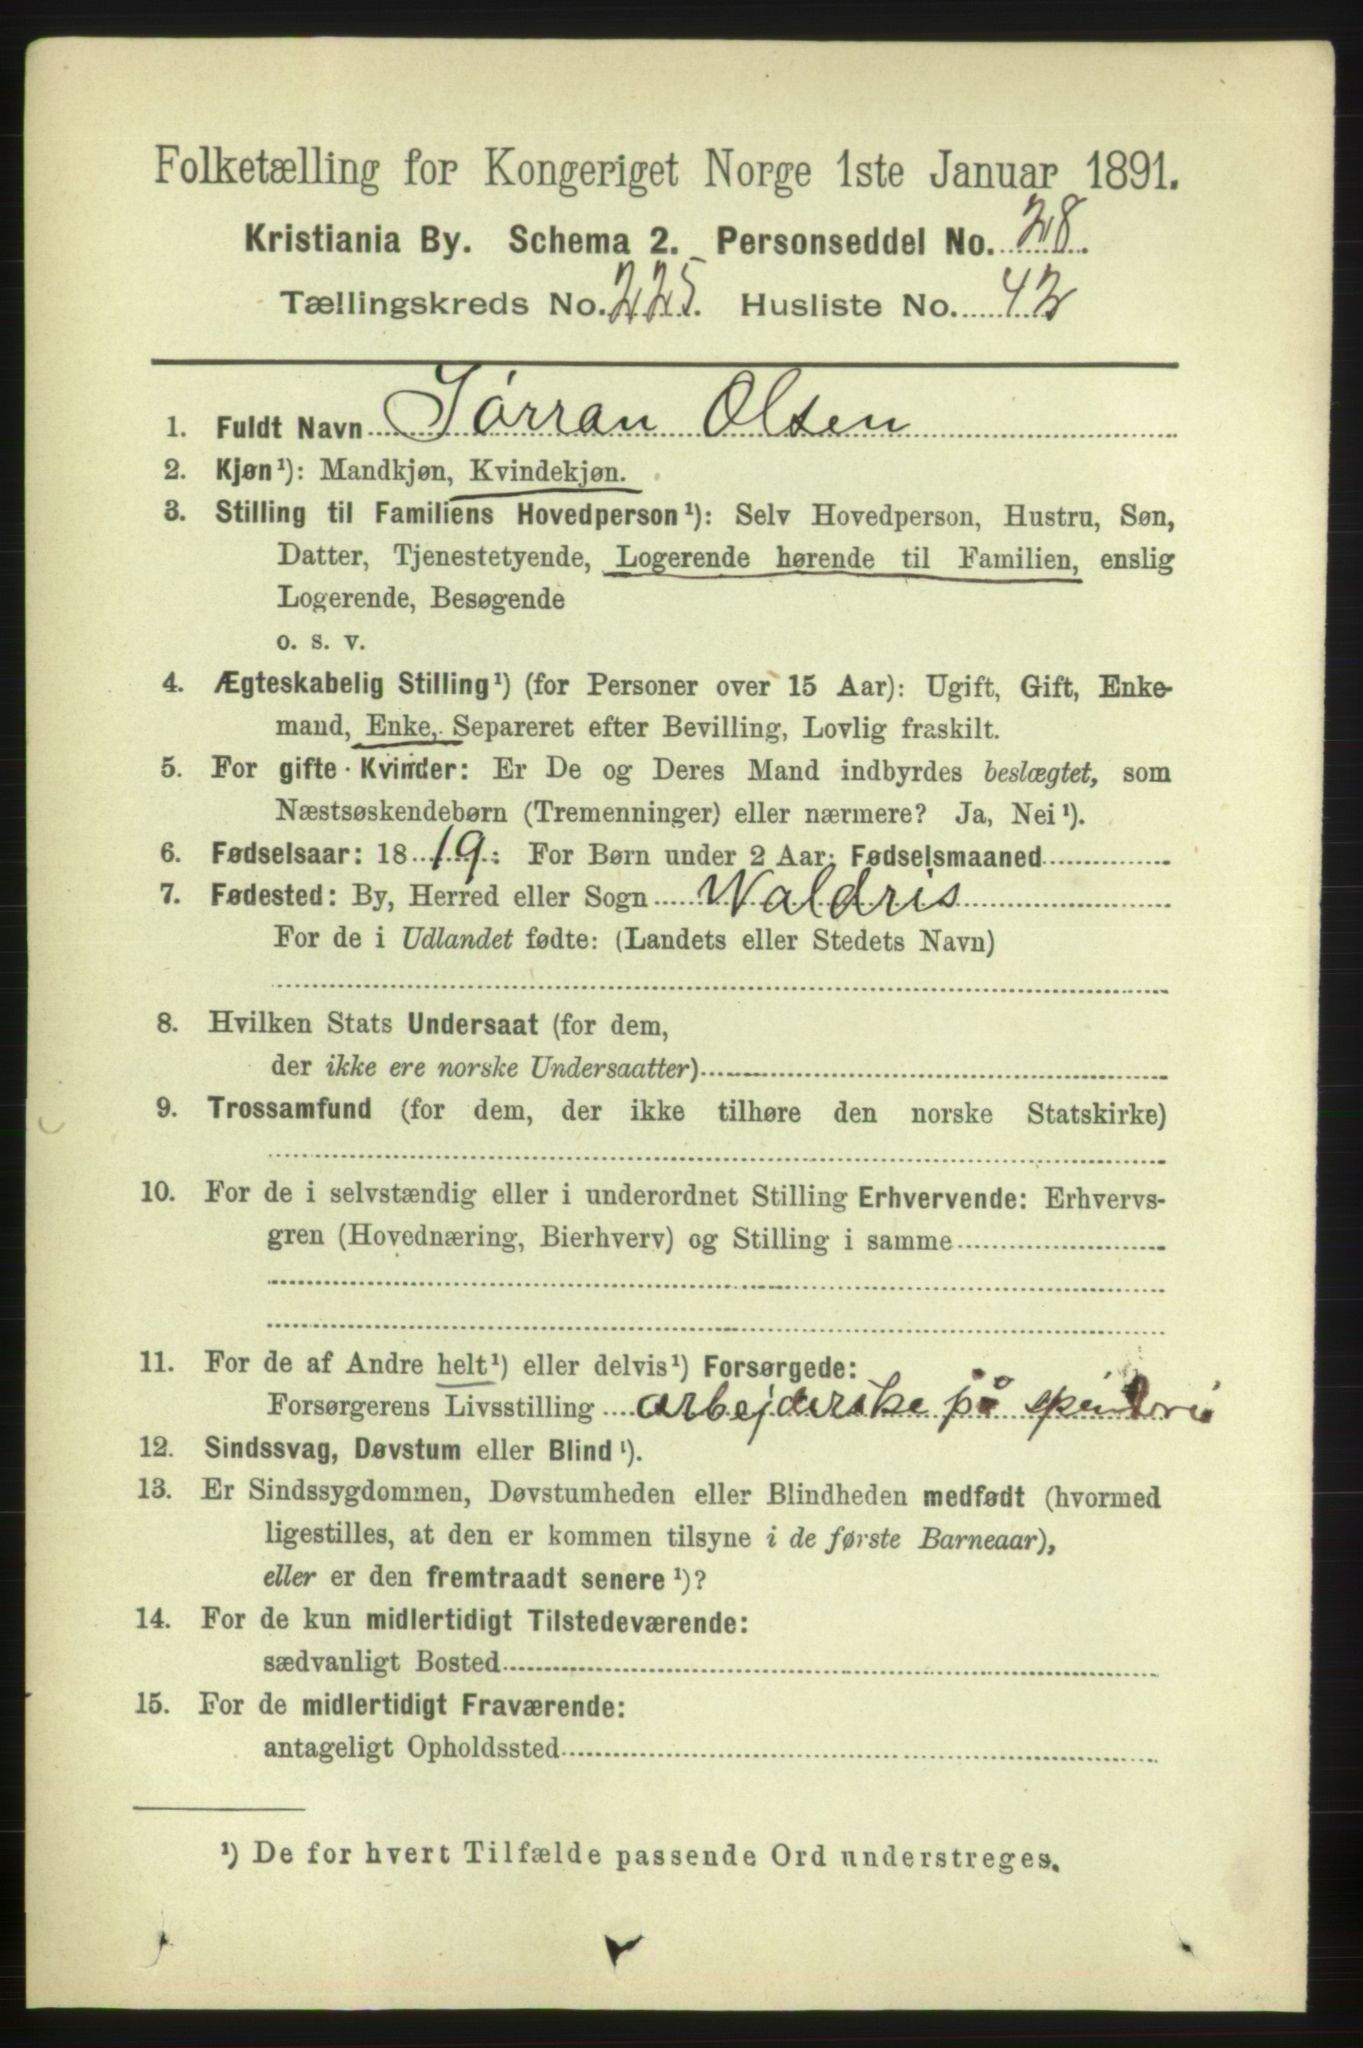 Folketælling for Kongeriget Norge 1ste Januar 1891.
Kristiania By. Schema 2. Personseddel No. 28.
Tællingskreds No. 225. Husliste No. 42
1. Fuldt Navn Sørran Olsen
2. Kjøn¹): Mandkjøn, Kvindekjøn.
3. Stilling til Familiens Hovedperson¹): Selv Hovedperson, Hustru, Søn,
Datter, Tjenestetyende, Logerende hørende til Familien, enslig
Logerende, Besøgende
o. s. v.
4. Ægteskabelig Stilling¹) (for Personer over 15 Aar): Ugift, Gift, Enke-
mand, Enke, Separeret efter Bevilling, Lovlig fraskilt.
5. For gifte Kvinder: Er De og Deres Mand indbyrdes beslægtet, som
Næstsøskendebørn (Tremenninger) eller nærmere? Ja, Nei¹).
6. Fødselsaar: 1819. For Børn under 2 Aar: Fødselsmaaned
7. Fødested: By, Herred eller Sogn Waldris
For de i Udlandet fødte: (Landets eller Stedets Navn)
8. Hvilken Stats Undersaat (for dem,
der ikke ere norske Undersaatter)
9. Trossamfund (for dem, der ikke tilhøre den norske Statskirke)
10. For de i selvstændig eller i underordnet Stilling Erhvervende: Erhvervs-
gren (Hovednæring, Bierhverv) og Stilling i samme
11. For de af Andre helt¹) eller delvis¹) Forsørgede:
Forsørgerens Livsstilling arbejderske på
12. Sindssvag, Døvstum eller Blind¹).
13. Er Sindssygdommen, Døvstumheden eller Blindheden medfødt (hvormed
ligestilles, at den er kommen tilsyne i de første Barneaar),
eller er den fremtraadt senere¹)?
14. For de kun midlertidigt Tilstedeværende:
sædvanligt Bosted
15. For de midlertidigt Fraværende:
antageligt Opholdssted
¹) De for hvert Tilfælde passende Ord understreges.